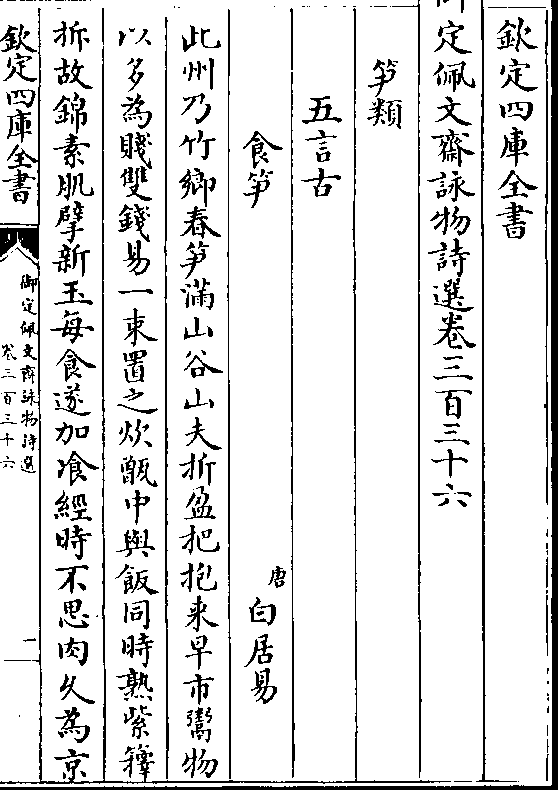 欽定四庫全書
御定佩文齋詠物詩選卷三百三十六
笋類
五言古
食笋
唐 白居易
此州乃竹鄉春笋滿山谷山夫折盈把抱来早市鬻物
以多為賤雙錢易一束置之炊甑中與飯同時熟紫籜
拆故錦素肌擘新玉每食遂加飡經時不思肉久為京
欽定四庫全書
御定佩文齋詠物詩選
卷三百三十六
一